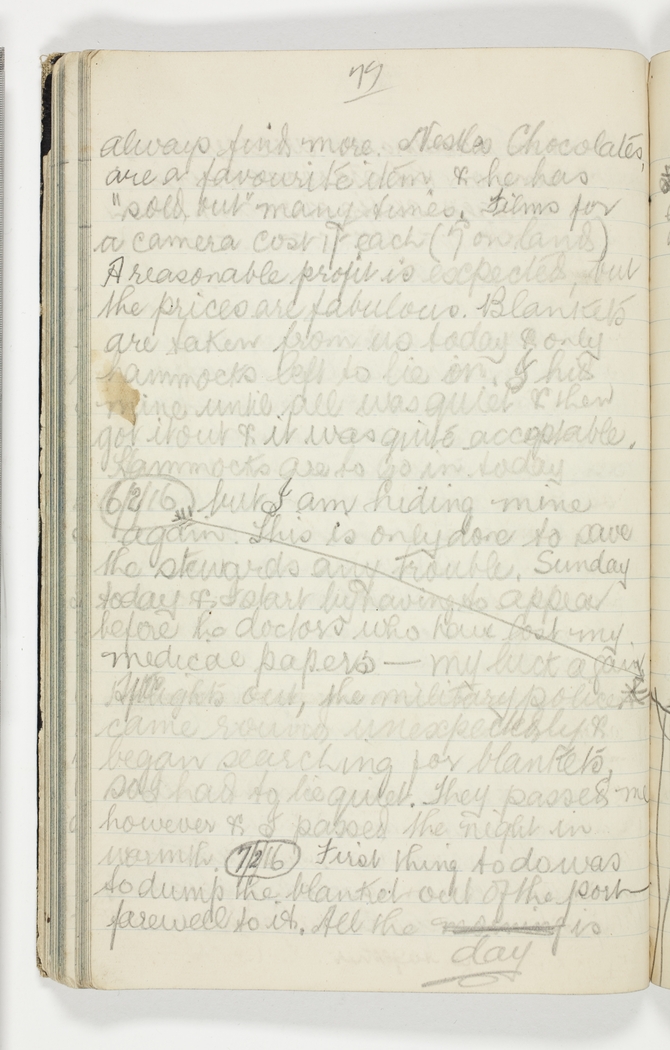 77
always find more. Nestles Chocolates,
are a favourite item & he has
"sold out" many times. Films for
a camera cost each ( on land)
A reasonable profit is expected, but
the prices are fabulous. Blankets
are taken from us today & only
hammocks left to lie on. I hid
mine until all was quiet & then
got it out & it was quite acceptable.
Hammocks are to go in today
6/2/16 but I am hiding mine
again. This is only done to save
the stewards any trouble. Sunday
today & I start by having to appear
before the doctors who have lost my
medical papers — my luck again
lights out, the military police
came round unexpectedly &
began searching for blankets,
so I had to lie quiet. They passed me
however & I passed the night in
warmth. 7/2/16 First thing to do was
to dump the blanket out of the port
farewell to it. All the morning is
day